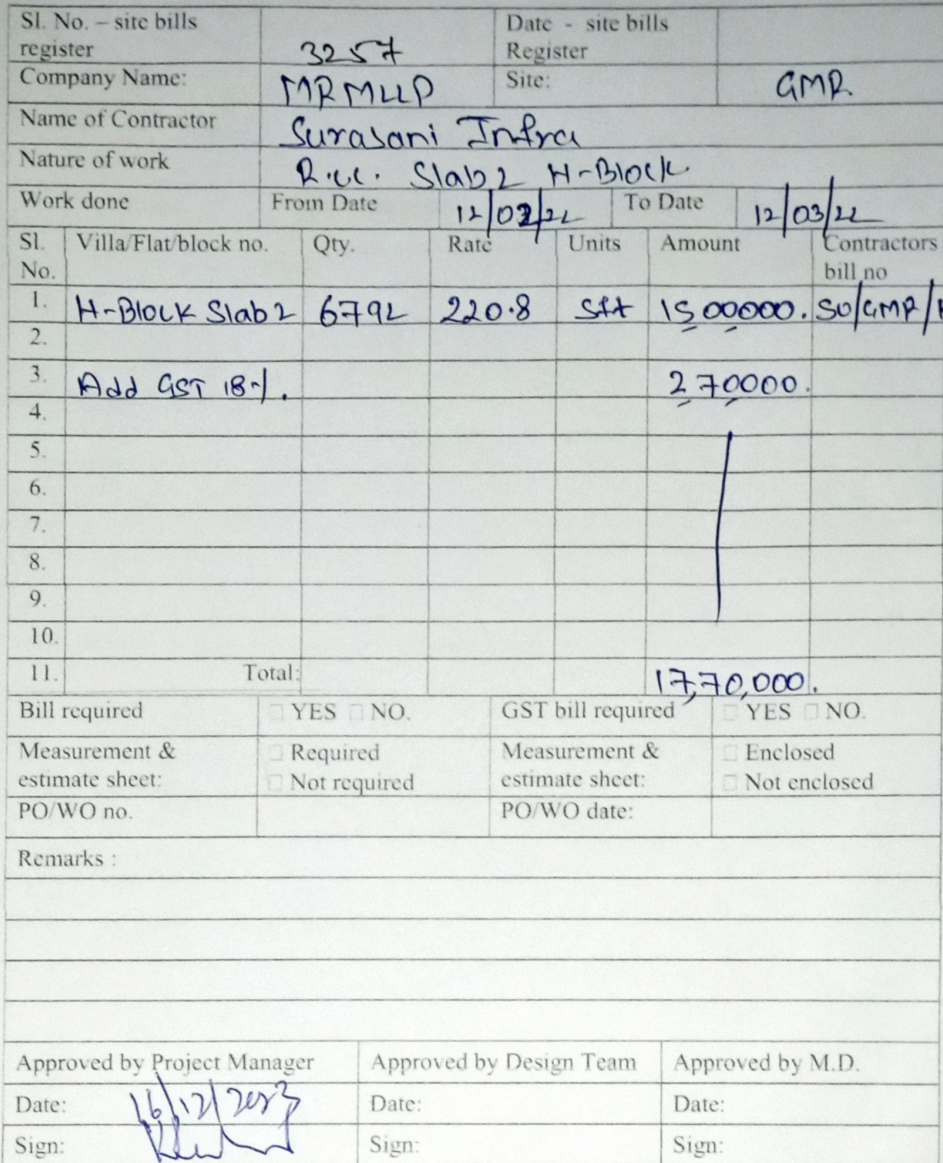 Sl. No. – site bills register 3257 Date - site bills Register
Company Name: MRMLLP Site: GMR
Name of Contractor Surasani Infra
Nature of work R.c.c. Slab 2 H-Block
Work done From Date 12/02/22 To Date 12/03/22
Sl. No. Villa/Flat/block no. Qty. Rate Units Amount Contractors bill no
1. H-Block Slab 2 6792 220.8 Sft 15,00000. SO/GMR/
2.
3. Add GST 18%. 2,70000.
4.
5.
6.
7.
8.
9.
10.
11. Total: 17,70,000.
Bill required YES NO. GST bill required YES NO.
Measurement & estimate sheet: Required Not required Measurement & estimate sheet: Enclosed Not enclosed
PO/WO no. PO/WO date:
Remarks :
Approved by Project Manager Approved by Design Team Approved by M.D.
Date: 16/12/2023 Date: Date:
Sign: Sign: Sign: